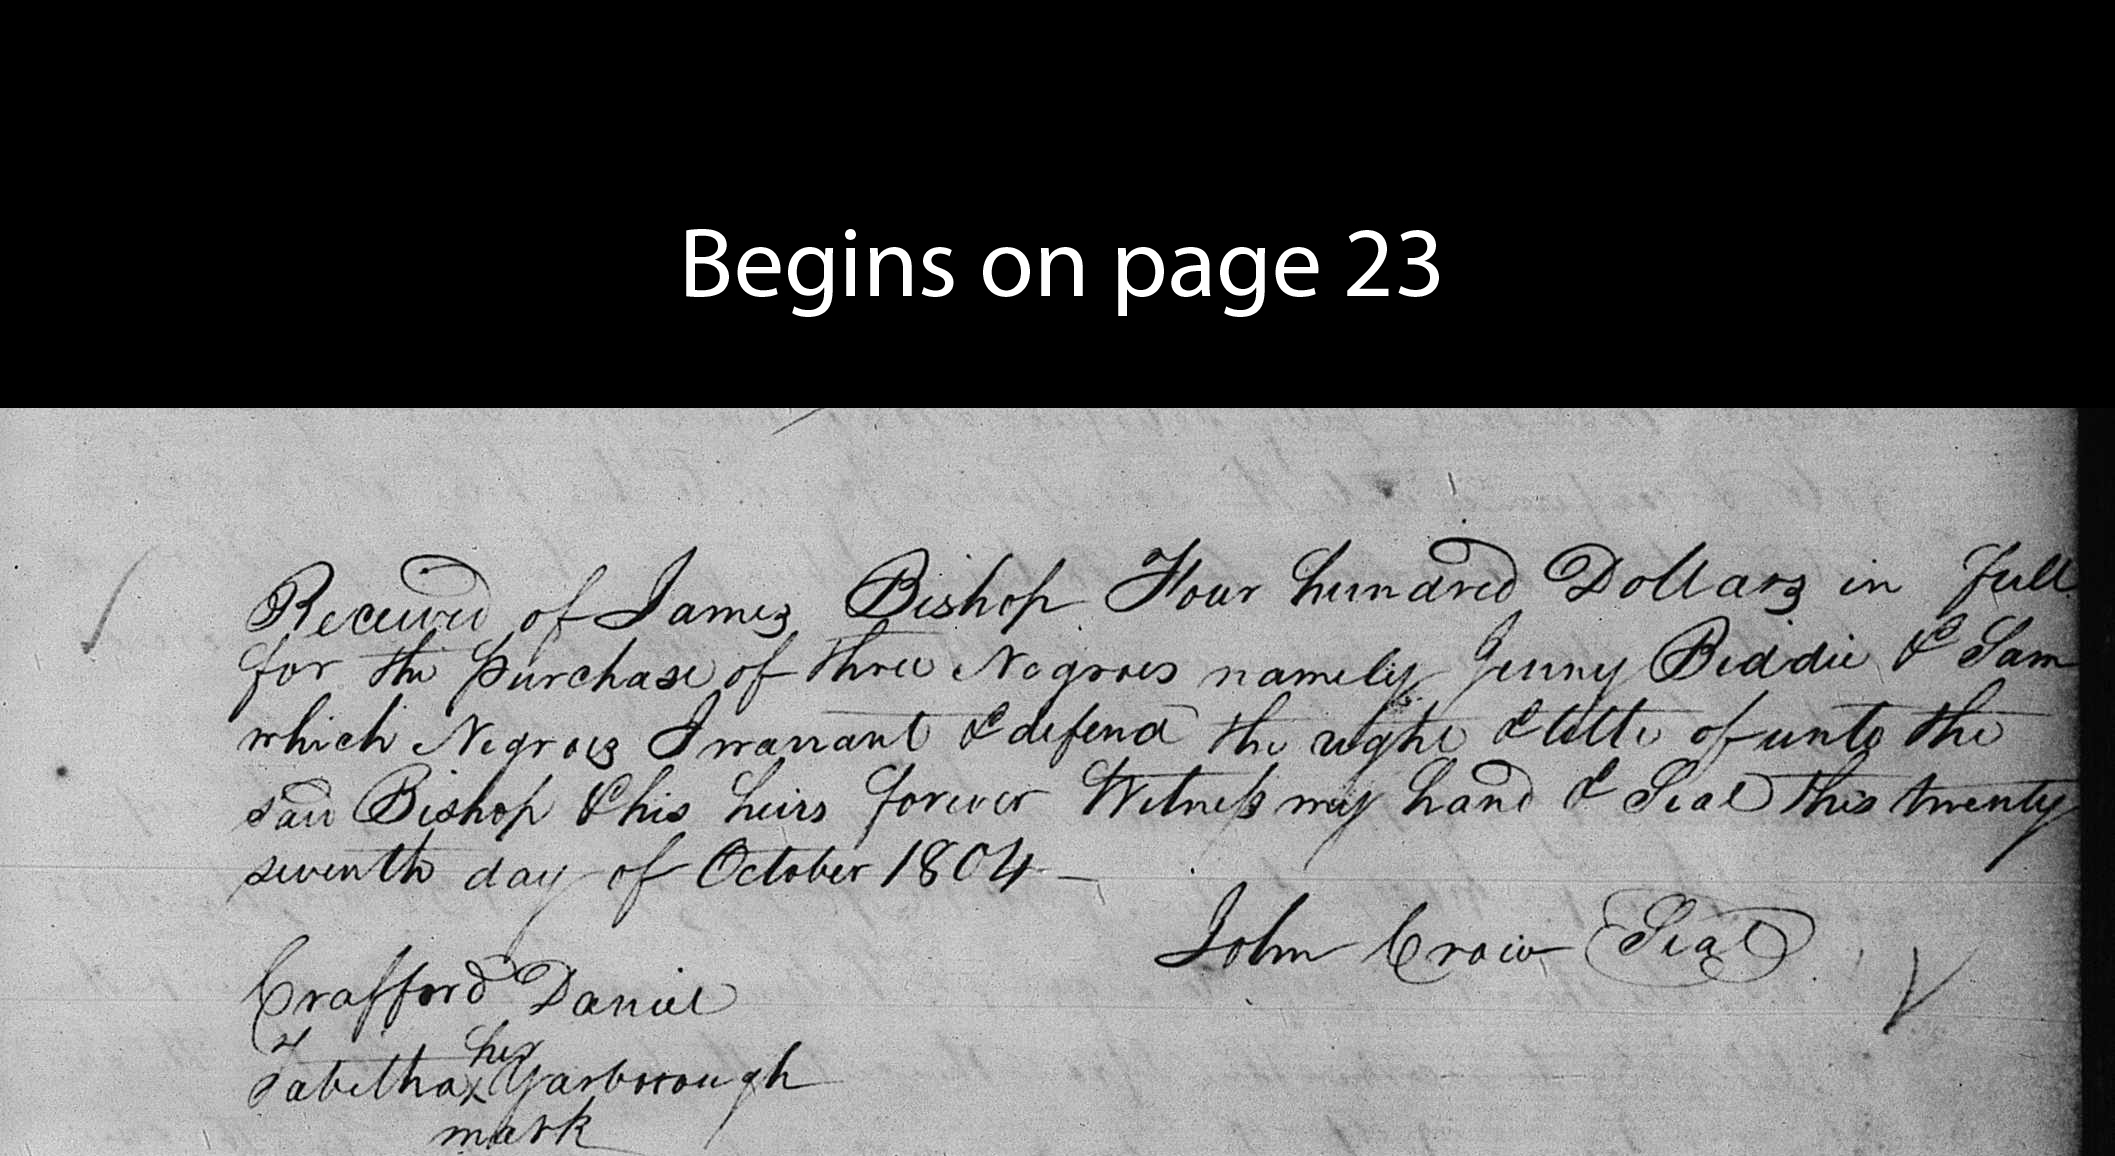 Begins on page 23
Received of James Bishop Four hundred Dollars in full
for the purchase of three Negroes namely Jenny Biddie & Sam
which Negroes I warrant & defend the right & title of unto the
said Bishop & his heirs forever Witness my hand & Seal this twenty
seventh day of October 1804 —
John Crow Seal
Crafford Daniel
her
Tabitha x Yarborough
mark